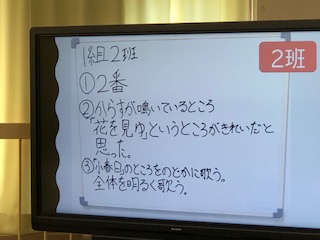 1組2班
2班
①2番
②からすが鳴いているところ
「花を見ゆ」というところがきれいだと
思った。
③「小春日」のところをのどかに歌う。
全体を明るく歌う。